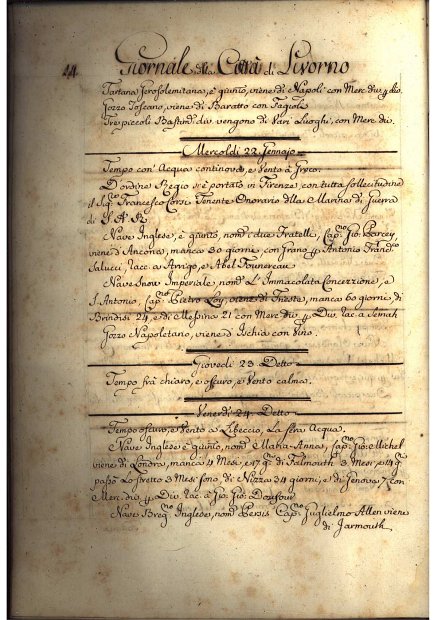 44 Giornale della Città di Livorno
Tartana Jerosolemitana, è giunto, viene di Napoli con Merc. div. p. div.
Gozzo Toscano, viene di Baratto con Fagioli
Tre piccoli Bastim.ti div. vengono di Vari Luoghi, con Merc. div.
Mercoldi 22 Gennajo
Tempo con Acqua continova, e Vento à Greco.
D'ordine Regio si è portato in Firenze con tutta sollecitudine
il Sig.re Francesco Corsi Tenente Onorario della Marina di Guerra
di S. A. R.
Nave Inglese, è giunto, nom. i due Fratelli, Cap.no Gio: Barcey,
viene d'Ancona, manca 30 giorni con Grano p. Antonio Fran.co
Salucci, rac. a Arrigo, e Abel Fonnereau
Nave Snow Imperiale, nom.a L'Immacolata Concezzione, e
S. Antonio, Cap.no Pietro Loy, viene di Trieste, manca 60 giorni, di
Brindisi 24, e di Messina 21 con Merc. div. p. Div. rac. a Senah
Gozzo Napoletano, viene d'Ischia con Vino.
Giovedi 23 Detto
Tempo frà chiaro, e oscuro, e Vento calma.
Venerdi 24 Detto
Tempo oscuro, e Vento a Libeccio, La sera Acqua.
Nave Inglese è giunto, nom.a Maria-Anna, Cap.no Gio: Michel
viene di Londra, manca 4 Mesi, e 17 g.ni di Falmouth 3 Mesi, e 4 g.ni
passò Lo Stretto 3 Mesi sono, di Nizza 34 giorni, e di Genova 7. con
Mer. div. p. Div. rac. a Gio: Gio: Doufour
Nave Breg.no Inglese, nom. Persis Cap.no Guglielmo Allen viene
di Jarmouth,